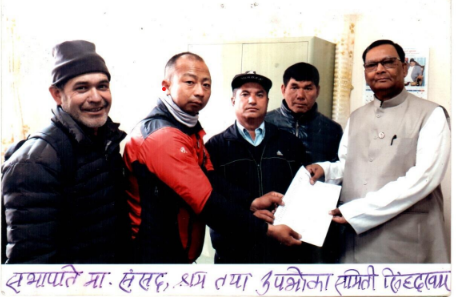 सभापति मा. संसद, श्रम तथा उपभोक्ता समिती सिंहदरवार